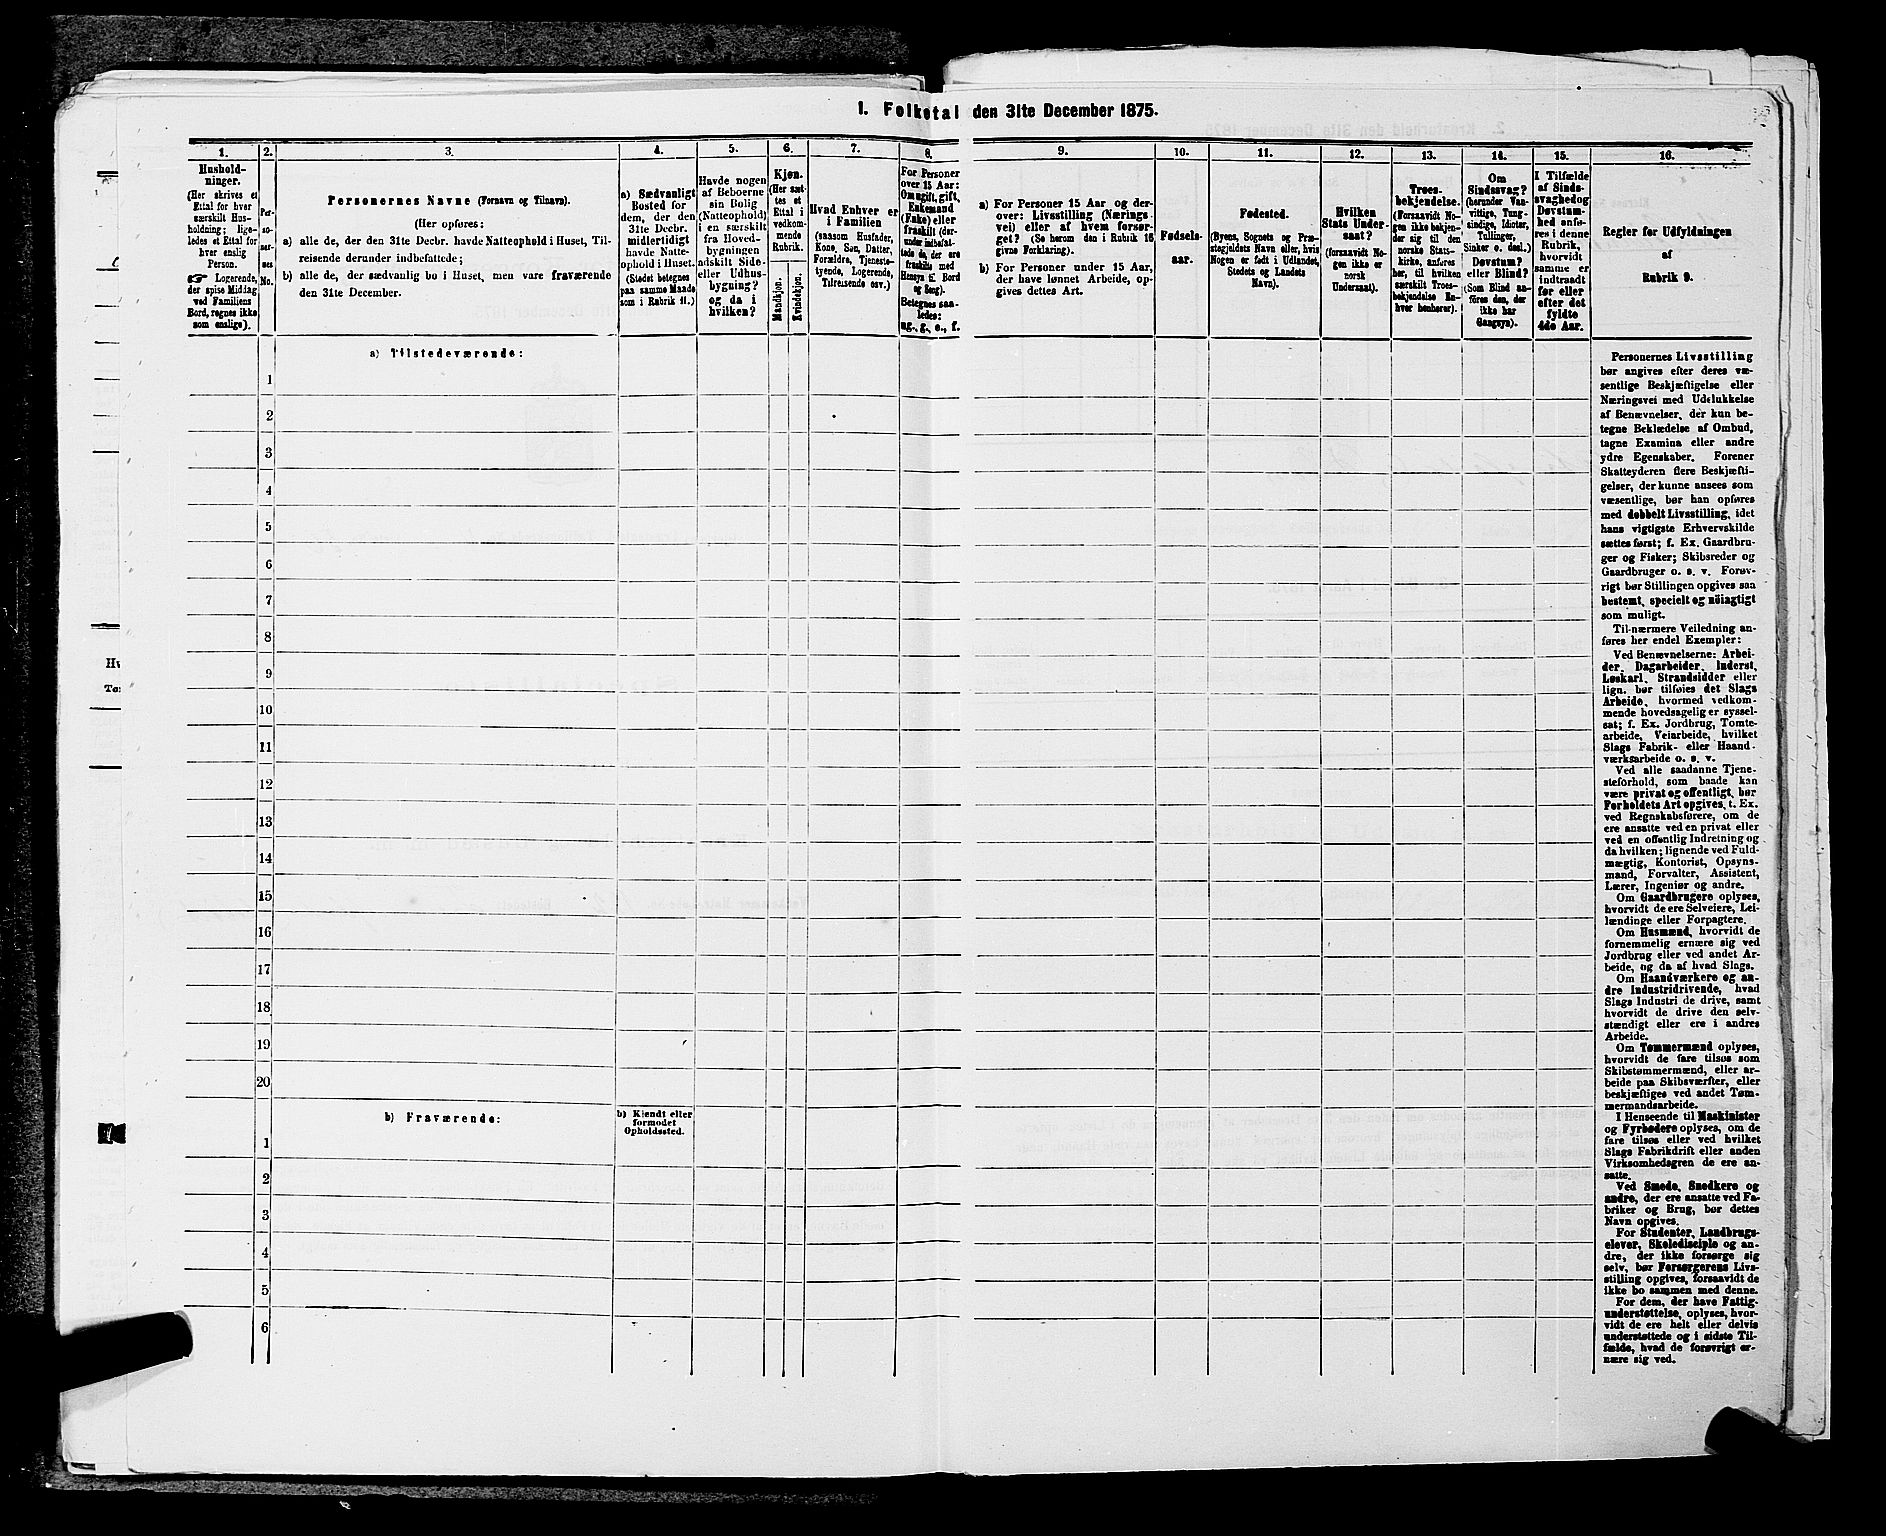 1. Folketal den 31te December 1875.
1.
Hushold-
ninger.
(Her skrives et
Ettal for hver
særskilt Hus-
holdning; lige-
ledes et Ettal for
hver enslig
Person.
☞ Logerende,
der spise Middag
ved Familiens
Bord, regnes ikke
som enslige).
2.
Per-
so-
ner-
nes
No.
3.
Personernes Navne (Fornavn og Tilnavn).
(Her opføres:
a) alle de, der den 31te Decbr. havde Natteophold i Huset, Til-
reisende derunder indbefattede;
b) alle de, der sædvanlig bo i Huset, men vare fraværende
den 31te December.
4.
a) Sædvanligt
Bosted for
dem, der den
31te Decbr.
midlertidigt
havde Natte-
ophold i Huset.
(Stedet betegnes
paa samme Maade
som i Rubrik 11.)
5.
Havde nogen
af Beboerne
sin Bolig
(Natteophold)
i en særskilt
fra Hoved-
bygningen
adskilt Side-
eller Udhus-
bygning?
og da i
hvilken?
6.
Kjøn.
(Her sæt-
tes et
Ettal i
vedkom-
mende
Rubrik.
Mandkjøn.
Kvindekjøn.
7.
Hvad Enhver er
i Familien
(saasom Husfader,
Kone, Søn, Datter,
Forældre, Tjeneste-
tyende, Logerende,
Tilreisende osv.)
8.
For Personer
over 15 Aar:
Om ugift, gift,
Enkemand
(Enke) eller
fraskilt (der-
under indbefat-
tede de, der ere
fraskilte med
Hensyn til Bord
og Seng).
Betegnes saa-
ledes:
ug., g., e., f.
9.
a) For Personer 15 Aar og der-
over: Livsstilling (Nærings-
vei) eller af hvem forsør-
get? (Se herom den i Rubrik 16
givne Forklaring).
b) For Personer under 15 Aar,
der have lønnet Arbeide, op-
gives dettes Art.
10.
Fødsels-
aar.
11.
Fødested.
(Byens, Sognets og Præ-
stegjeldets Navn eller, hvis
Nogen er født i Udlandet,
Stedets og Landets
Navn).
12.
Hvilken
Stats Under-
saat?
(forsaavidt No-
gen ikke er
norsk
Undersaat).
13.
Troes-
bekjendelse.
(Forsaavidt No-
gen ikke bekjen-
der sig til den
norske Stats-
kirke, anføres
her, til hvilken
særskilt Troes-
bekjendelse En-
hver henhører).
14.
Om
Sindssvag?
(herunder Van-
vittige, Tung-
sindige, Idioter,
Tullinger,
Sinker o. desl.)
Døvstum?
eller Blind?
(Som Blind an-
føres den, der
ikke har
Gangsyn).
15.
I Tilfælde
af Sinds-
svaghed og
Døvstum-
hed anfø-
res i denne
Rubrik,
hvorvidt
samme er
indtraadt
før eller
efter det
fyldte
4de Aar.
16.
Regler for Udfyldningen
af
Rubrik 9.
a) Tilstedeværende:
1
2
3
4
5
6
7
8
9
10
11
12
13
14
15
16
17
18
19
20
b) Fraværende:
b) Kjendt eller
formodet
Opholdssted.
1
2
3
4
5
6
Personernes Livsstilling
bør angives efter deres væ-
sentlige Beskjæftigelse eller
Næringsvei med Udelukkelse
af Benævnelser, der kun be-
tegne Beklædelse af Ombud,
tagne Examina eller andre
ydre Egenskaber. Forener
Skatteyderen flere Beskjæfti-
gelser, der kunne ansees som
væsentlige, bør han opføres
med dobbelt Livsstilling, idet
hans vigtigste Erhvervskilde
sættes først; f. Ex. Gaardbru-
ger og Fisker; Skibsreder og
Gaardbruger o. s. v. Forøv-
rigt bør Stillingen opgives saa
bestemt, specielt og nøiagtigt
som muligt.
Til nærmere Veiledning an-
føres her endel Exempler:
Ved Benævnelserne: Arbei-
der, Dagarbeider, Inderst,
Løskarl, Strandsidder eller
lign. bør tilføies det Slags
Arbeide, hvormed vedkom-
mende hovedsagelig er syssel-
sat; f. Ex. Jordbrug, Tomte-
arbeide, Veiarbeide, hvilket
Slags Fabrik- eller Haand-
værksarbeide o. s. v.
Ved alle saadanne Tjene-
steforhold, som baade kan
være privat og offentligt, bør
Forholdets Art opgives, t. Ex.
ved Regnskabsførere, om de
ere ansatte ved en privat eller
ved en offentlig Indretning og
da hvilken; lignende ved Fuld-
mægtig, Kontorist, Opsyns-
mand, Forvalter, Assistent,
Lærer, Ingeniør og andre.
Om Gaardbrugere oplyses,
hvorvidt de ere Selveiere, Lei-
lændinge eller Forpagtere.
Om Husmænd, hvorvidt de
fornemmelig ernære sig ved
Jordbrug eller ved andet Ar-
beide, og da af hvad Slags.
Om Haandværkere og an-
dre Industridrivende, hvad
Slags Industri de drive, samt
hvorvidt de drive den selv-
stændigt eller ere i andres
Arbeide.
Om Tømmermænd oplyses,
hvorvidt de fare tilsøs som
Skibstømmermænd, eller ar-
beide paa Skibsværfter, eller
beskjæftiges ved andet Tøm-
mermandsarbeide.
I Henseende til Maskinister
og Fyrbødere oplyses, om de
fare tilsøs eller ved hvilket
Slags Fabrikdrift eller anden
Virksomhedsgren de ere an-
satte.
Ved Smede, Snedkere og
andre, der ere ansatte ved Fa-
briker og Brug, bør dettes
Navn opgives.
For Studenter, Landbrugs-
elever, Skoledisciple og an-
dre, der ikke forsørge sig
selv, bør Forsørgerens Livs-
stilling opgives, forsaavidt de
ikke bo sammen med denne.
For dem, der have Fattig-
understøttelse, oplyses, hvor-
vidt de ere helt eller delvis
understøttede og i sidste Til-
fælde, hvad de forøvrigt er-
nære sig ved.